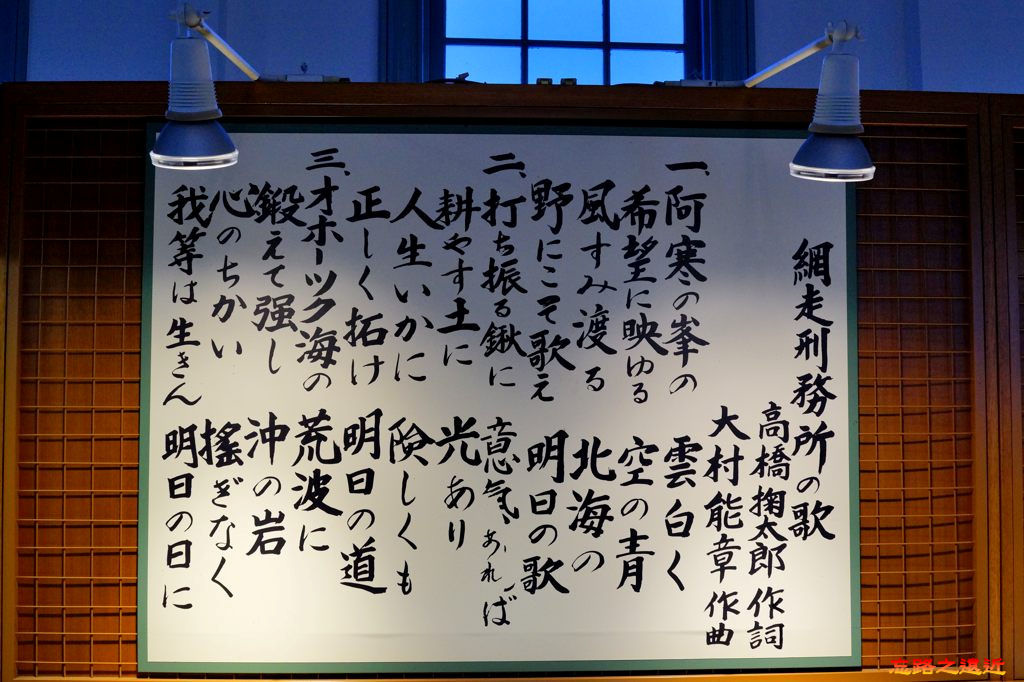 網走刑務所の歌
高橋掬太郎 作詞
大村能章 作曲
一、阿寒の峯の 雲白く
希望に映ゆる 空の青
風すみ渡る 北海の
野にこそ歌え 明日の歌
二、打ち振る鍬に 意気あれば
耕やす土に 光あり
人生いかに 険しくも
正しく拓け 明日の道
三、オホーツク海の 荒波に
鍛えて强し 沖の岩
心のちかい 搖ぎなく
我等は生きん 明日の日に
忘路之遠近